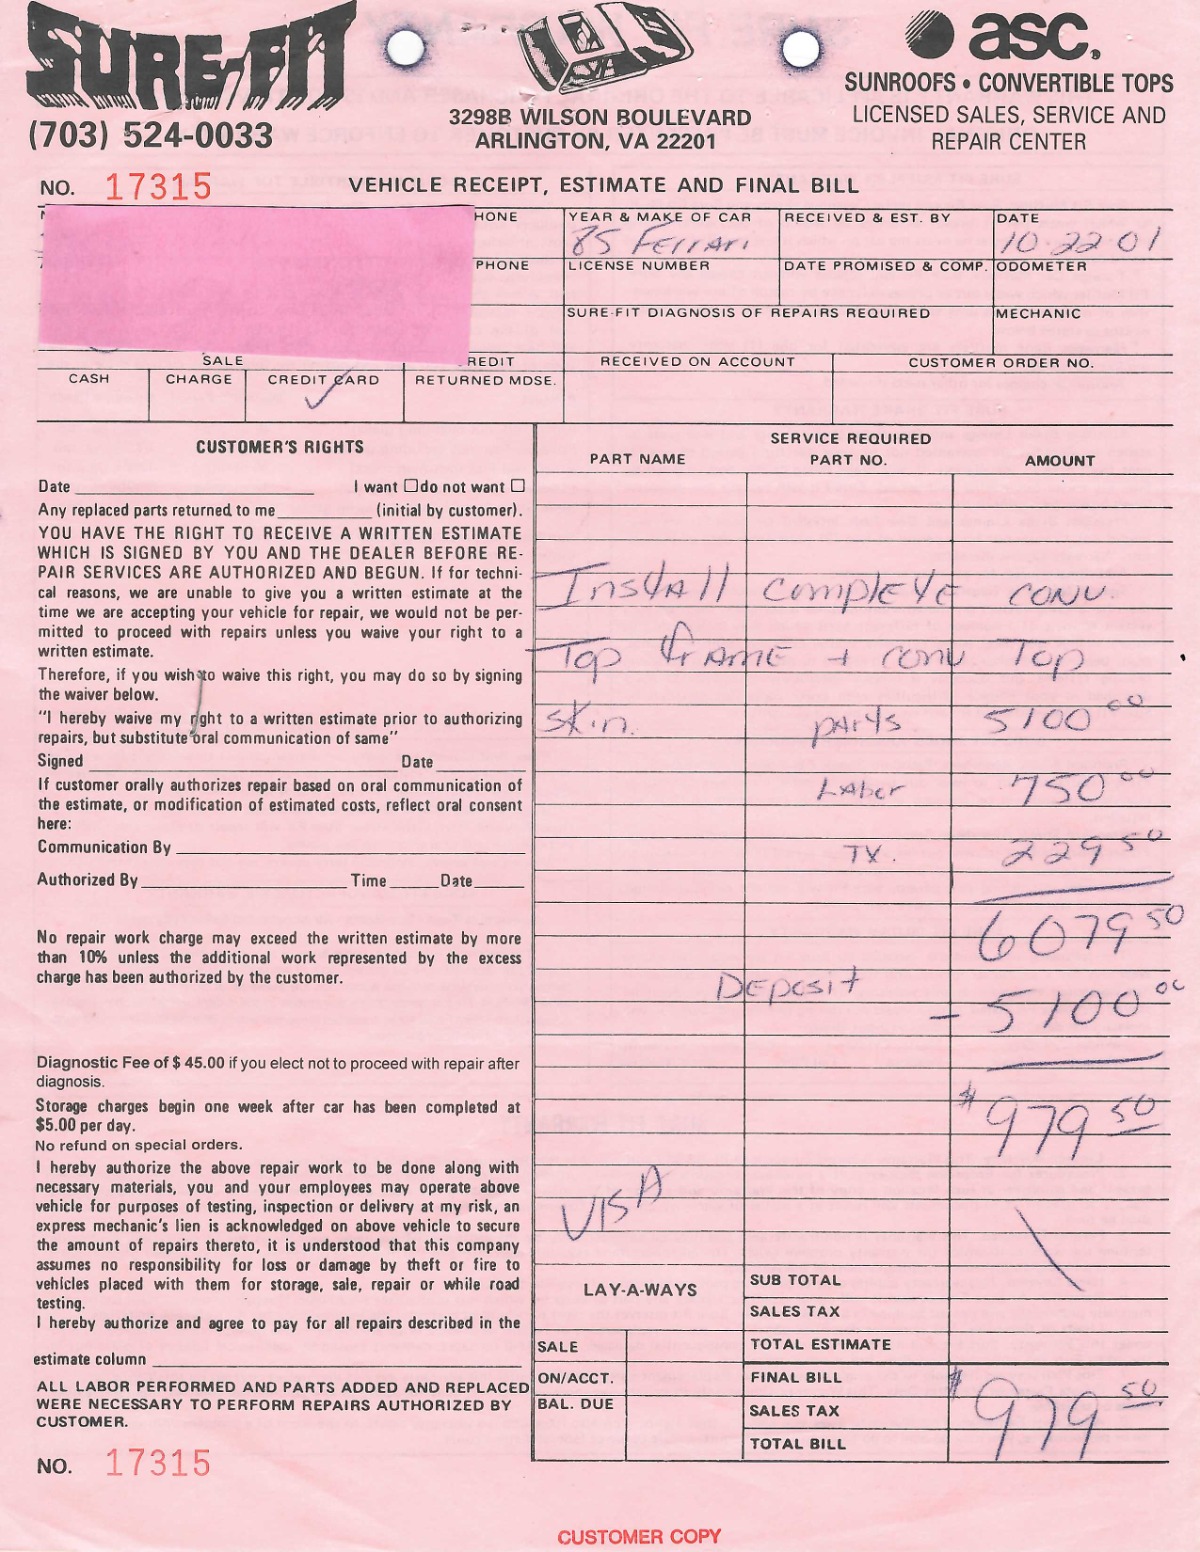 SURE-FIT
(703) 524-0033
3298B WILSON BOULEVARD
ARLINGTON, VA 22201
asc.
SUNROOFS • CONVERTIBLE TOPS
LICENSED SALES, SERVICE AND
REPAIR CENTER
NO. 17315
VEHICLE RECEIPT, ESTIMATE AND FINAL BILL
HONE
YEAR & MAKE OF CAR
RECEIVED & EST. BY
DATE
85 Ferrari
10-22-01
PHONE
LICENSE NUMBER
DATE PROMISED & COMP.
ODOMETER
SURE-FIT DIAGNOSIS OF REPAIRS REQUIRED
MECHANIC
SALE
REDIT
RECEIVED ON ACCOUNT
CUSTOMER ORDER NO.
CASH
CHARGE
CREDIT CARD
RETURNED MDSE.
CUSTOMER'S RIGHTS
Date I want do not want
Any replaced parts returned to me (initial by customer).
YOU HAVE THE RIGHT TO RECEIVE A WRITTEN ESTIMATE
WHICH IS SIGNED BY YOU AND THE DEALER BEFORE RE-
PAIR SERVICES ARE AUTHORIZED AND BEGUN. If for techni-
cal reasons, we are unable to give you a written estimate at the
time we are accepting your vehicle for repair, we would not be per-
mitted to proceed with repairs unless you waive your right to a
written estimate.
Therefore, if you wish to waive this right, you may do so by signing
the waiver below.
"I hereby waive my right to a written estimate prior to authorizing
repairs, but substitute oral communication of same"
Signed Date
If customer orally authorizes repair based on oral communication of
the estimate, or modification of estimated costs, reflect oral consent
here:
Communication By
Authorized By Time Date
No repair work charge may exceed the written estimate by more
than 10% unless the additional work represented by the excess
charge has been authorized by the customer.
Diagnostic Fee of $ 45.00 if you elect not to proceed with repair after
diagnosis.
Storage charges begin one week after car has been completed at
$5.00 per day.
No refund on special orders.
I hereby authorize the above repair work to be done along with
necessary materials, you and your employees may operate above
vehicle for purposes of testing, inspection or delivery at my risk, an
express mechanic's lien is acknowledged on above vehicle to secure
the amount of repairs thereto, it is understood that this company
assumes no responsibility for loss or damage by theft or fire to
vehicles placed with them for storage, sale, repair or while road
testing.
I hereby authorize and agree to pay for all repairs described in the
estimate column
ALL LABOR PERFORMED AND PARTS ADDED AND REPLACED
WERE NECESSARY TO PERFORM REPAIRS AUTHORIZED BY
CUSTOMER.
NO. 17315
SERVICE REQUIRED
PART NAME PART NO. AMOUNT
Install complete conv.
Top frame + conv Top
skin. parts 5100 00
Labor 750 00
TX. 229 50
6079 50
Deposit - 5100 00
$ 979 50
VISA
LAY-A-WAYS
SUB TOTAL
SALES TAX
SALE
TOTAL ESTIMATE
ON/ACCT.
FINAL BILL
BAL. DUE
SALES TAX
$ 979 50
TOTAL BILL
CUSTOMER COPY